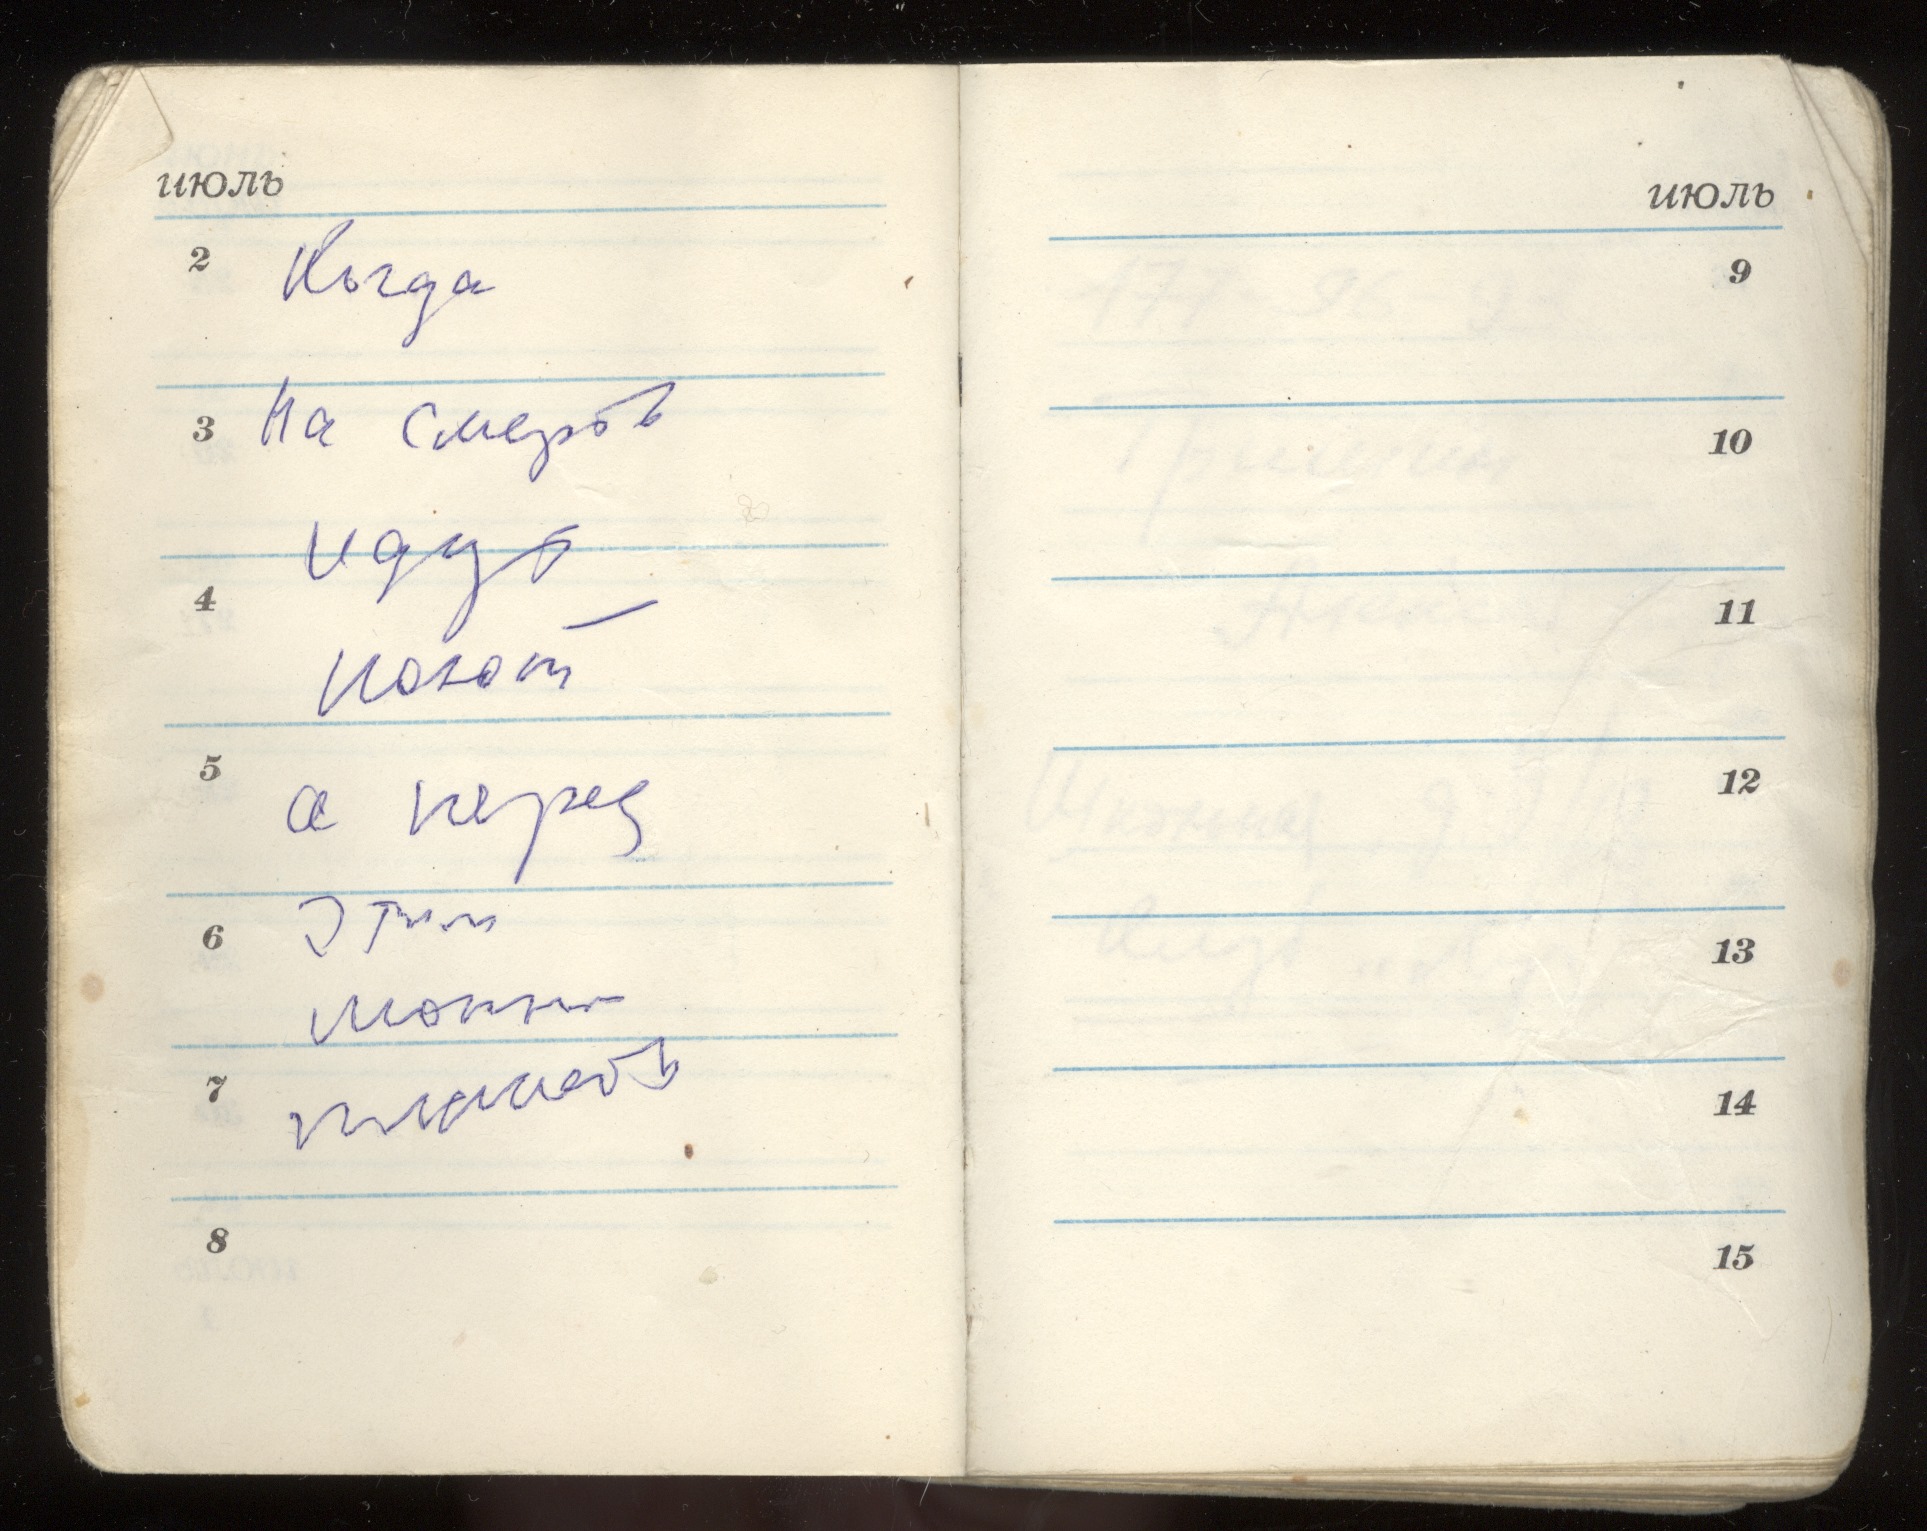 июль
2 Когда
3 На смерть
идут
4 поют
5 а перед
6 этим
можно
7 плакать
8
июль
9
10
11
12
13
14
15